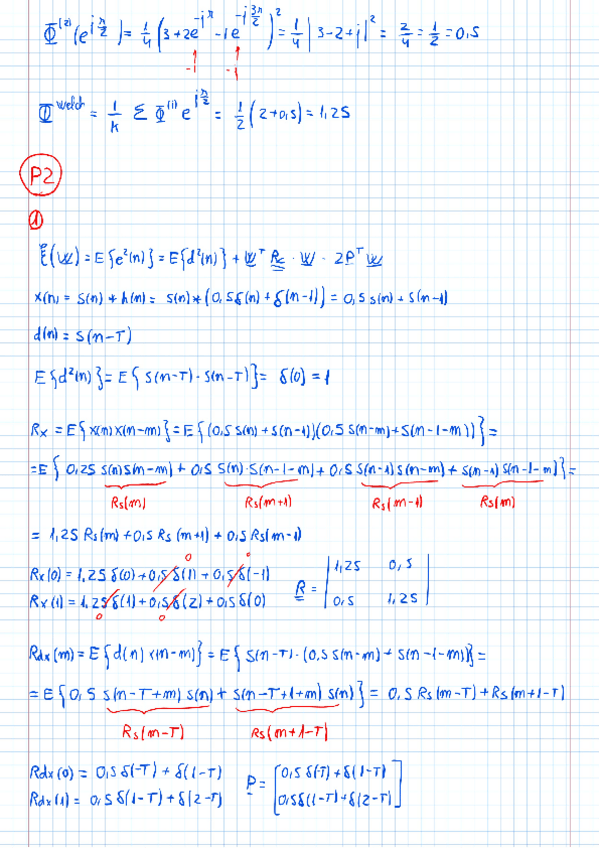 Φ^(2)(e^{jπ/2}) = 1/4 (3+2e^{-jπ} -1e^{-j3π/2})^2 = 1/4 |3-2+j|^2 = 2/4 = 1/2 = 0,5
-1 -j
Φ^welch = 1/K Σ Φ^(i) e^{jπ/2} = 1/2 (2+0,5) = 1,25
P2
1
ξ(w) = E{e²(n)} = E{d²(n)} + w^T Rx · w · 2P^T w
x(n) = s(n) * h(n) = s(n)*(0,5δ(n)+δ(n-1)) = 0,5 s(n) + s(n-1)
d(n) = s(n-T)
E{d²(n)} = E{s(n-T)·s(n-T)} = δ(0) = 1
Rx = E{x(n)x(n-m)} = E{(0,5 s(n)+s(n-1))(0,5 s(n-m)+s(n-1-m))} =
=E{0,25 s(n)s(n-m) + 0,5 s(n)·s(n-1-m) + 0,5 s(n-1)s(n-m) + s(n-1)s(n-1-m)} =
Rs(m) Rs(m+1) Rs(m-1) Rs(m)
= 1,25 Rs(m) + 0,5 Rs(m+1) + 0,5 Rs(m-1)
0 0
Rx(0) = 1,25 δ(0) + 0,5 δ(1) + 0,5 δ(-1) R = |1,25 0,5|
Rx(1) = 1,25 δ(1) + 0,5 δ(2) + 0,5 δ(0) |0,5 1,25|
0 0
Rdx(m) = E{d(n) x(n-m)} = E{s(n-T)·(0,5 s(n-m) + s(n-1-m))} =
= E{0,5 s(n-T+m) s(n) + s(n-T+1+m) s(n)} = 0,5 Rs(m-T) + Rs(m+1-T)
Rs(m-T) Rs(m+1-T)
Rdx(0) = 0,5 δ(-T) + δ(1-T) P = [0,5 δ(-T) + δ(1-T)]
Rdx(1) = 0,5 δ(1-T) + δ(2-T) [0,5δ(1-T)+δ(2-T)]